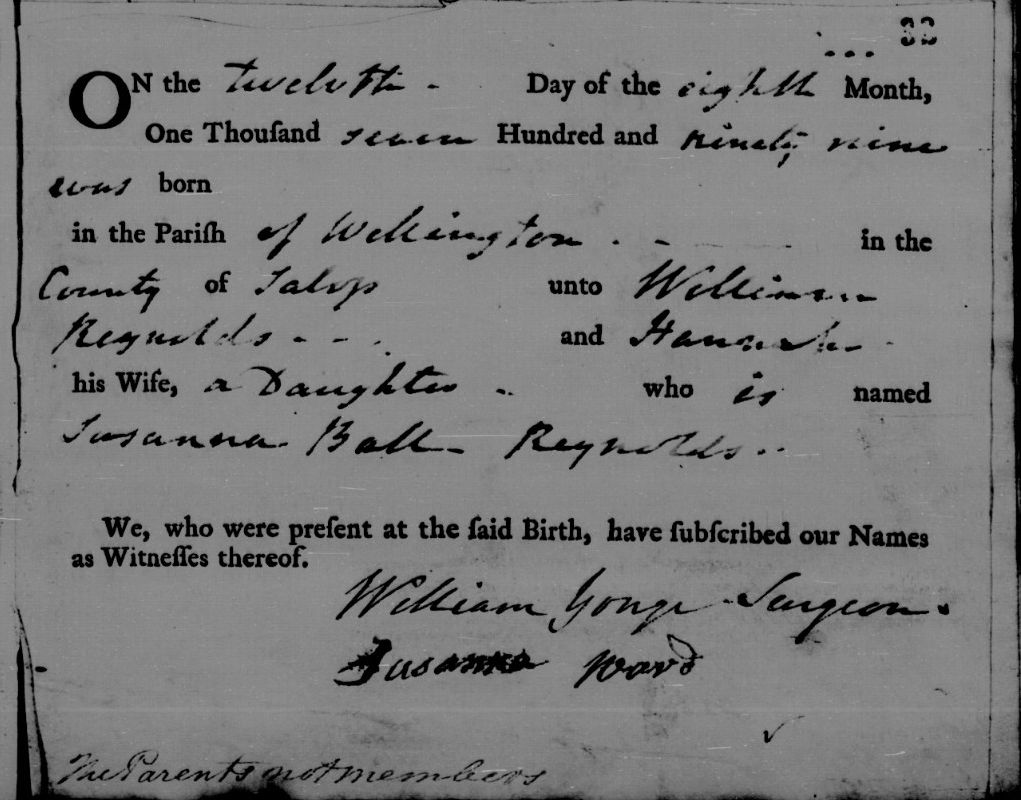 32
ON the twelvth - Day of the eighth Month,
One Thouſand seven Hundred and ninety nine
was born
in the Pariſh of Wellington - - in the
County of Salop unto William
Reynolds - - - and Hannah -
his Wife, a Daughter - who is named
Susanna Ball Reynolds -
We, who were preſent at the ſaid Birth, have ſubſcribed our Names
as Witneſſes thereof.
William Yonge - Surgeon.
Susanna Ward
The Parents not members